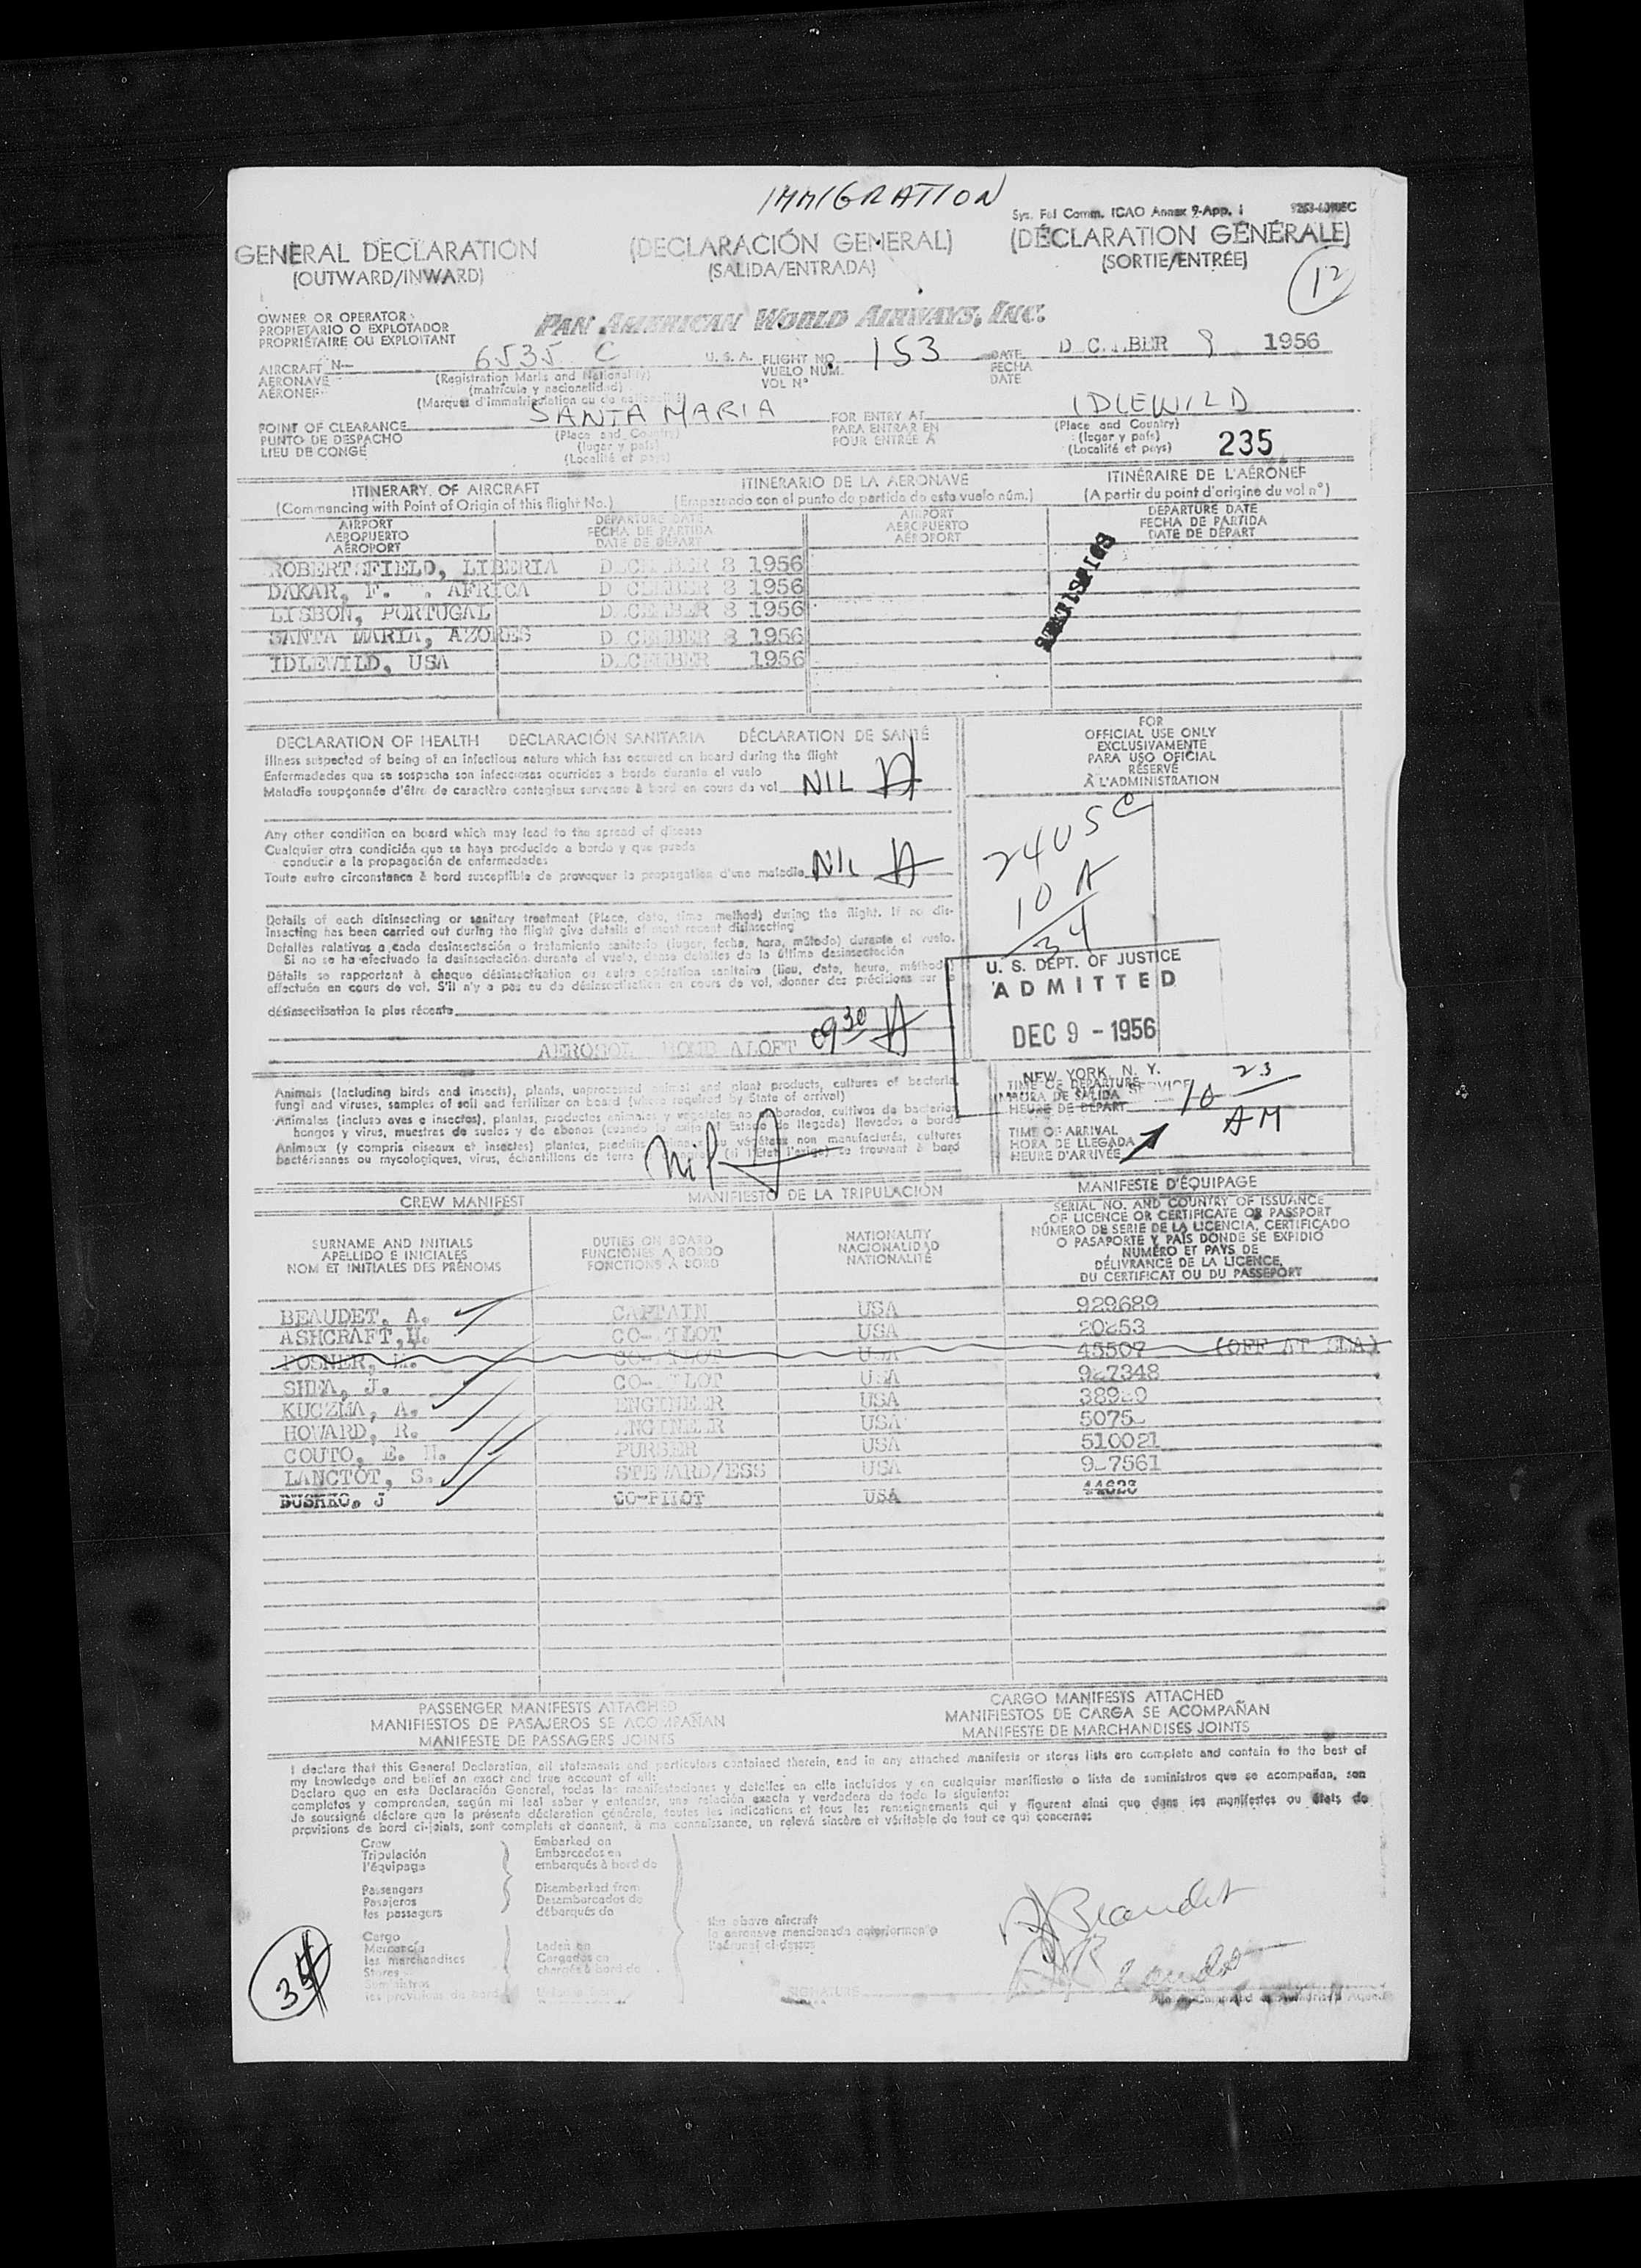 IMMIGRATION
Sys. Fal Comm. ICAO Annex 9-App. 1
GENERAL DECLARATION (DECLARACIÓN GENERAL) (DÉCLARATION GÉNÉRALE)
(OUTWARD/INWARD) (SALIDA/ENTRADA) (SORTIE/ENTRÉE)
12
OWNER OR OPERATOR
PROPIETARIO O EXPLOTADOR
PROPRIÉTAIRE OU EXPLOITANT
PAN AMERICAN WORLD AIRWAYS, INC.
AIRCRAFT N— 6535 C U. S. A. FLIGHT NO. 153 DATE D C..BER 9 1956
AERONAVE (Registration Marks and Nationality) VUELO NUM. FECHA
AÉRONEF (matrícula y nacionalidad) VOL Nº DATE
(Marques d'immatriculation ou de nationalité)
POINT OF CLEARANCE SANTA MARIA FOR ENTRY AT IDLEWILD
PUNTO DE DESPACHO (Place and Country) PARA ENTRAR EN (Place and Country)
LIEU DE CONGÉ (lugar y país) POUR ENTRÉE À (lugar y país)
(Localité et pays) (Localité et pays) 235
ITINERARY OF AIRCRAFT ITINERARIO DE LA AERONAVE ITINÉRAIRE DE L'AÉRONEF
(Commencing with Point of Origin of this flight No.) (Empezando con el punto de partida de esta vuelo núm.) (A partir du point d'origine du vol nº)
AIRPORT DEPARTURE DATE AIRPORT DEPARTURE DATE
AEROPUERTO FECHA DE PARTIDA AEROPUERTO FECHA DE PARTIDA
AÉROPORT DATE DE DÉPART AÉROPORT DATE DE DÉPART
ROBERTSFIELD, LIBERIA DECEMBER 8 1956
DAKAR, F. . AFRICA D CEMBER 8 1956
LISBON, PORTUGAL DECEMBER 8 1956
SANTA MARIA, AZORES D CEMBER 8 1956
IDLEWILD, USA D.CEMBER 1956
STATISTICS
DECLARATION OF HEALTH DECLARACIÓN SANITARIA DÉCLARATION DE SANTÉ
Illness suspected of being of an infectious nature which has occured on board during the flight
Enfermedades que se sospecha son infecciosas ocurridas a bordo durante el vuelo
Maladie soupçonnée d'être de caractère contagieux survenue à bord en cours de vol NIL
Any other condition on board which may lead to the spread of disease
Cualquier otra condición que se haya producido a bordo y que pueda
conducir a la propagación de enfermedades
Toute autre circonstance à bord susceptible de provoquer la propagation d'une maladie NIL
Details of each disinsecting or sanitary treatment (Place, date, time method) during the flight. If no dis-
insecting has been carried out during the flight give details of most recent disinsecting
Detalles relativos a cada desinsectación o tratamiento sanitario (lugar, fecha, hora, método) durante el vuelo.
Si no se ha efectuado la desinsectación durante el vuelo, dense detalles de la última desinsectación
Détails se rapportant à chaque désinsectisation ou autre opération sanitaire (lieu, date, heure, méthode)
effectuée en cours de vol. S'il n'y a pas eu de désinsectisation en cours de vol, donner des précisions sur la
désinsectisation la plus récente
AEROSOL BOMB ALOFT 0930
FOR
OFFICIAL USE ONLY
EXCLUSIVAMENTE
PARA USO OFICIAL
RÉSERVÉ
À L'ADMINISTRATION
24 USC
10 A
34
U. S. DEPT. OF JUSTICE
ADMITTED
DEC 9 - 1956
NEW YORK, N. Y.
Animals (including birds and insects), plants, unprocessed animal and plant products, cultures of bacteria,
fungi and viruses, samples of soil and fertilizer on board (where required by State of arrival)
Animales (incluso aves e insectos), plantas, productos animales y vegetales no elaborados, cultivos de bacterias
hongos y virus, muestras de suelos y de abonos (cuando lo exija el Estado de llegada) llevados a bordo
Animaux (y compris oiseaux et insectes) plantes, produits animaux ou végétaux non manufacturés, cultures
bactériennes ou mycologiques, virus, échantillons de terre (si l'État l'exige) se trouvant à bord
Nil
TIME OF DEPARTURE SERVICE
HORA DE SALIDA
HEURE DE DÉPART
TIME OF ARRIVAL
HORA DE LLEGADA
HEURE D'ARRIVÉE
10 23
AM
CREW MANIFEST MANIFIESTO DE LA TRIPULACIÓN MANIFESTE D'ÉQUIPAGE
SURNAME AND INITIALS DUTIES ON BOARD NATIONALITY
APELLIDO E INICIALES FUNCIONES A BORDO NACIONALIDAD
NOM ET INITIALES DES PRÉNOMS FONCTIONS À BORD NATIONALITÉ
SERIAL NO. AND COUNTRY OF ISSUANCE
OF LICENCE OR CERTIFICATE OR PASSPORT
NÚMERO DE SERIE DE LA LICENCIA, CERTIFICADO
O PASAPORTE Y PAÍS DONDE SE EXPIDIÓ
NUMÉRO ET PAYS DE
DÉLIVRANCE DE LA LICENCE,
DU CERTIFICAT OU DU PASSEPORT
BEAUDET, A. CAPTAIN USA 929689
ASHCRAFT, CO-PILOT USA 20253
POSNER, CO-PILOT USA 45507 (OFF AT SMA)
SHEA, J. CO-PILOT USA 927348
KUCZMA, A. ENGINEER USA
HOWARD, R. ENGINEER USA
COUTO, E. PURSER USA 510021
LANCTOT, S. STEWARD/ESS USA
BUSHKO, J CO-PILOT USA 44628
PASSENGER MANIFESTS ATTACHED CARGO MANIFESTS ATTACHED
MANIFIESTOS DE PASAJEROS SE ACOMPAÑAN MANIFIESTOS DE CARGA SE ACOMPAÑAN
MANIFESTE DE PASSAGERS JOINTS MANIFESTE DE MARCHANDISES JOINTS
I declare that this General Declaration, all statements and particulars contained therein, and in any attached manifests or stores lists are complete and contain to the best of
my knowledge and belief an exact and true account of all:
Declaro que en esta Declaración General, todas las manifestaciones y detalles en ella incluidos y en cualquier manifiesto o lista de suministros que se acompañan, son
completos y comprenden, según mi leal saber y entender, una relación exacta y verdadera de todo lo siguiente:
Je soussigné déclare que la présente déclaration générale, toutes les indications et tous les renseignements qui y figurent ainsi que dans les manifestes ou états de
provisions de bord ci-joints, sont complets et donnent, à ma connaissance, un relevé sincère et véritable de tout ce qui concerne:
Crew Embarked on
Tripulación Embarcados en
l'équipage embarqués à bord de
Passengers Disembarked from
Pasajeros Desembarcados de
les passagers débarqués de
the above aircraft
la aeronave mencionada anteriormente
l'aéronef ci-dessus
Cargo
Mercancía Laden on
les marchandises Cargados en
Stores chargés à bord de
A Beaudet
SIGNATURE
34